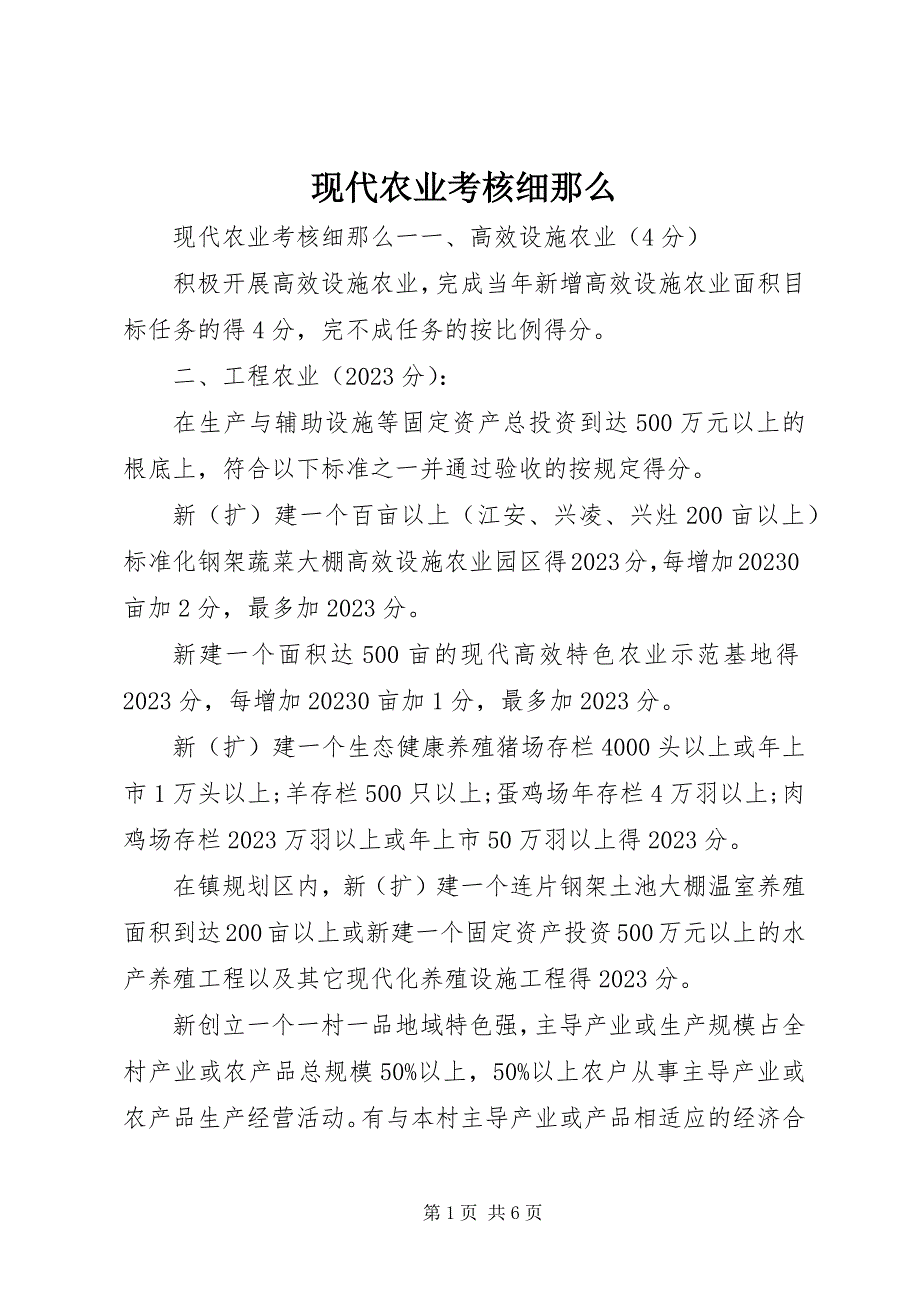 现代农业考核细那么
现代农业考核细那么一一、高效设施农业（4分）
积极开展高效设施农业，完成当年新增高效设施农业面积目
标任务的得4分，完不成任务的按比例得分。
二、工程农业（2023分）：
在生产与辅助设施等固定资产总投资到达500万元以上的
根底上，符合以下标准之一并通过验收的按规定得分。
新（扩）建一个百亩以上（江安、兴凌、兴灶200亩以上）
标准化钢架蔬菜大棚高效设施农业园区得2023分，每增加20230
亩加2分，最多加2023分。
新建一个面积达500亩的现代高效特色农业示范基地得
2023分，每增加20230亩加1分，最多加2023分。
新（扩）建一个生态健康养殖猪场存栏4000头以上或年上
市1万头以上;羊存栏500只以上;蛋鸡场年存栏4万羽以上;肉
鸡场存栏2023万羽以上或年上市50万羽以上得2023分。
在镇规划区内，新（扩）建一个连片钢架土池大棚温室养殖
面积到达200亩以上或新建一个固定资产投资500万元以上的水
产养殖工程以及其它现代化养殖设施工程得2023分。
新创立一个一村一品地域特色强，主导产业或生产规模占全
村产业或农产品总规模50%以上，50%以上农户从事主导产业或
农产品生产经营活动。有与本村主导产业或产品相适应的经济合
第1页 共6页